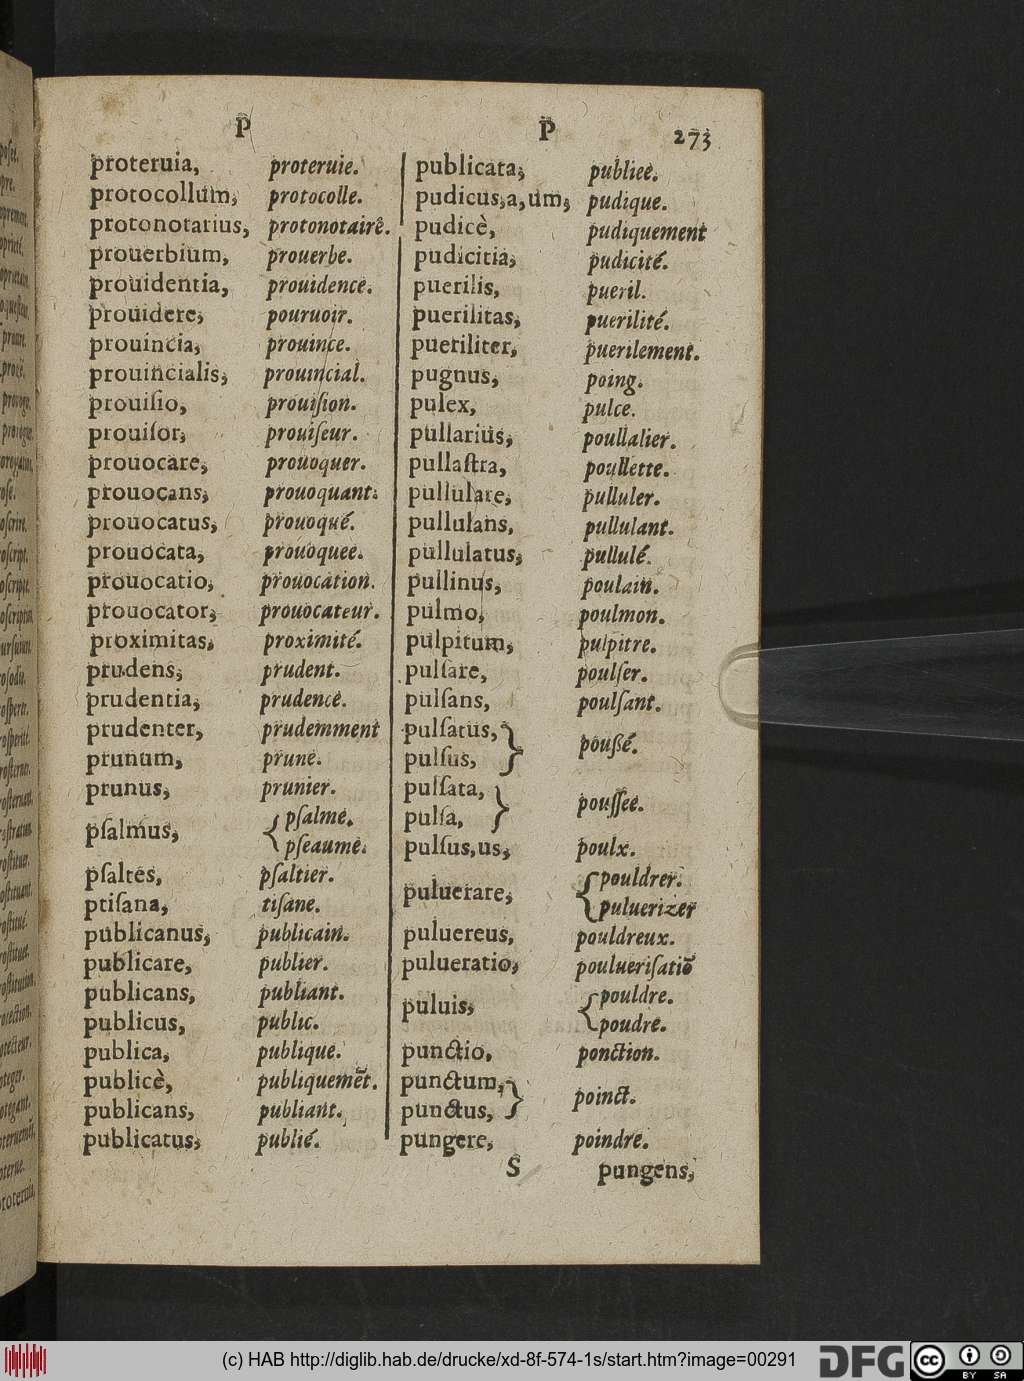 P P 273
proteruia, proteruie.
protocollum, protocolle.
protonotarius, protonotaire.
prouerbium, prouerbe.
prouidentia, prouidence.
prouidere, pouruoir.
prouincia, prouince.
prouincialis, prouincial.
prouiſio, prouiſion.
prouiſor, prouiſeur.
prouocare, prouoquer.
prouocans, prouoquant.
prouocatus, prouoqué.
prouocata, prouoquee.
prouocatio, prouocation.
prouocator, prouocateur.
proximitas, proximité.
prudens, prudent.
prudentia, prudence.
prudenter, prudemment
prunum, prune.
prunus, prunier.
pſalmus, { pſalme.
pſeaume.
pſaltes, pſaltier.
ptiſana, tiſane.
publicanus, publicain.
publicare, publier.
publicans, publiant.
publicus, public.
publica, publique.
publicè, publiquemēt.
publicans, publiant.
publicatus, publié.
publicata, publiee.
pudicus,a,um, pudique.
pudicè, pudiquement
pudicitia, pudicité.
puerilis, pueril.
puerilitas, puerilité.
pueriliter, puerilement.
pugnus, poing.
pulex, pulce.
pullarius, poullalier.
pullaſtra, poullette.
pullulare, pulluler.
pullulans, pullulant.
pullulatus, pullulé.
pullinus, poulain.
pulmo, poulmon.
pulpitum, pulpitre.
pulſare, poulſer.
pulſans, poulſant.
pulſatus, } poußé.
pulſus,
pulſata, } pouſſee.
pulſa,
pulſus,us, poulx.
puluerare, { pouldrer.
puluerizer
puluereus, pouldreux.
pulueratio, poulueriſatiō
puluis, { pouldre.
poudre.
punctio, ponction.
punctum, } poinct.
punctus,
pungere, poindre.
S pungens,
(c) HAB http://diglib.hab.de/drucke/xd-8f-574-1s/start.htm?image=00291
DFG
cc BY SA